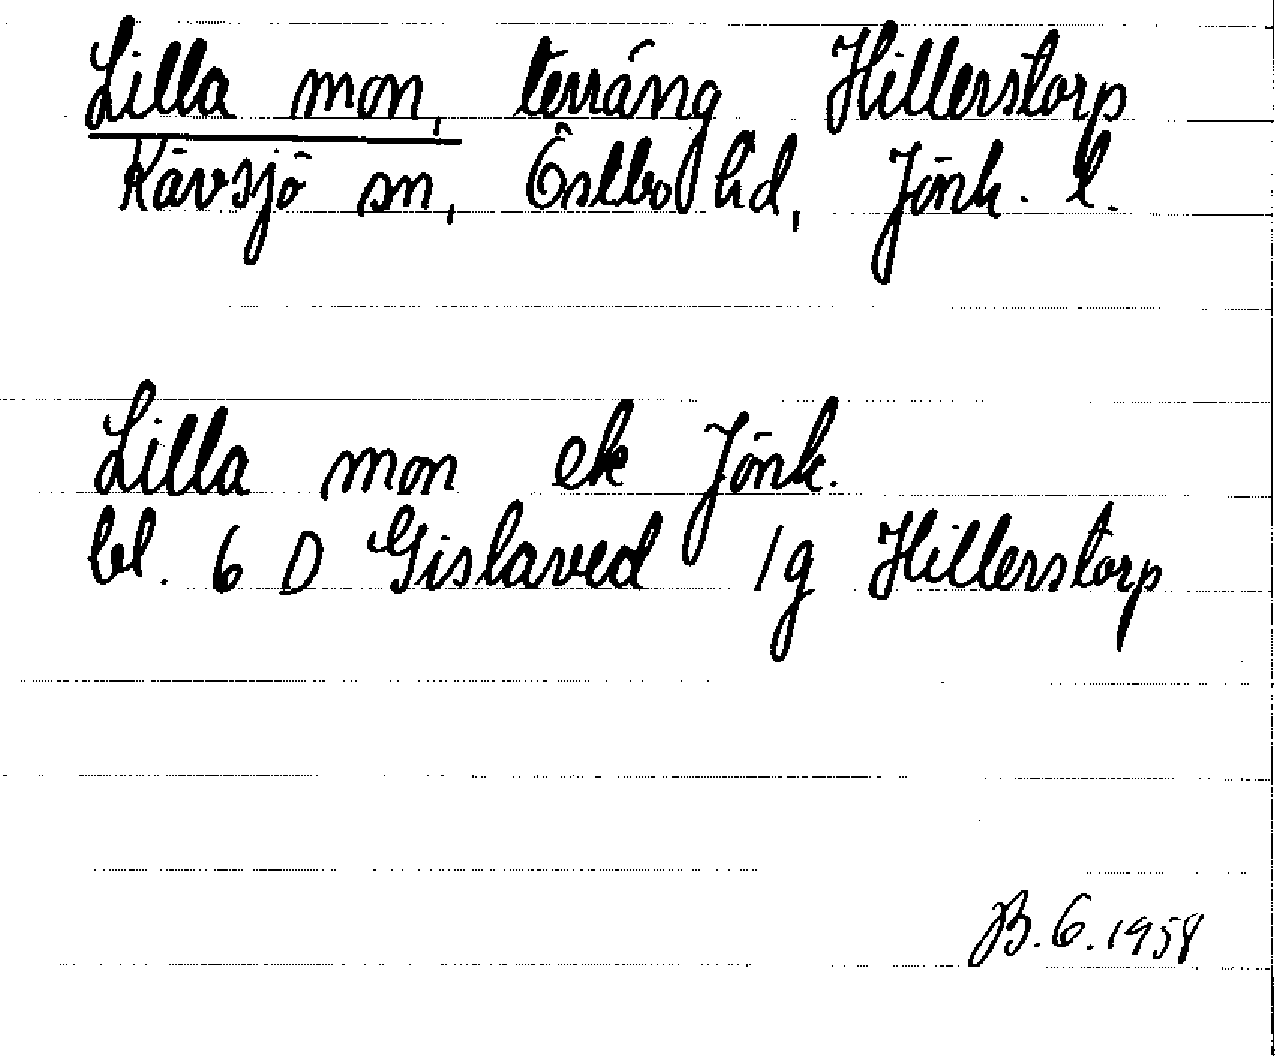 Lilla mon, terräng Hillerstorp
Kävsjö sn, Östbo hd, Jönk. l.
Lilla mon ek Jönk.
bl. 6 D Gislaved 1g Hillerstorp
B.G. 1958